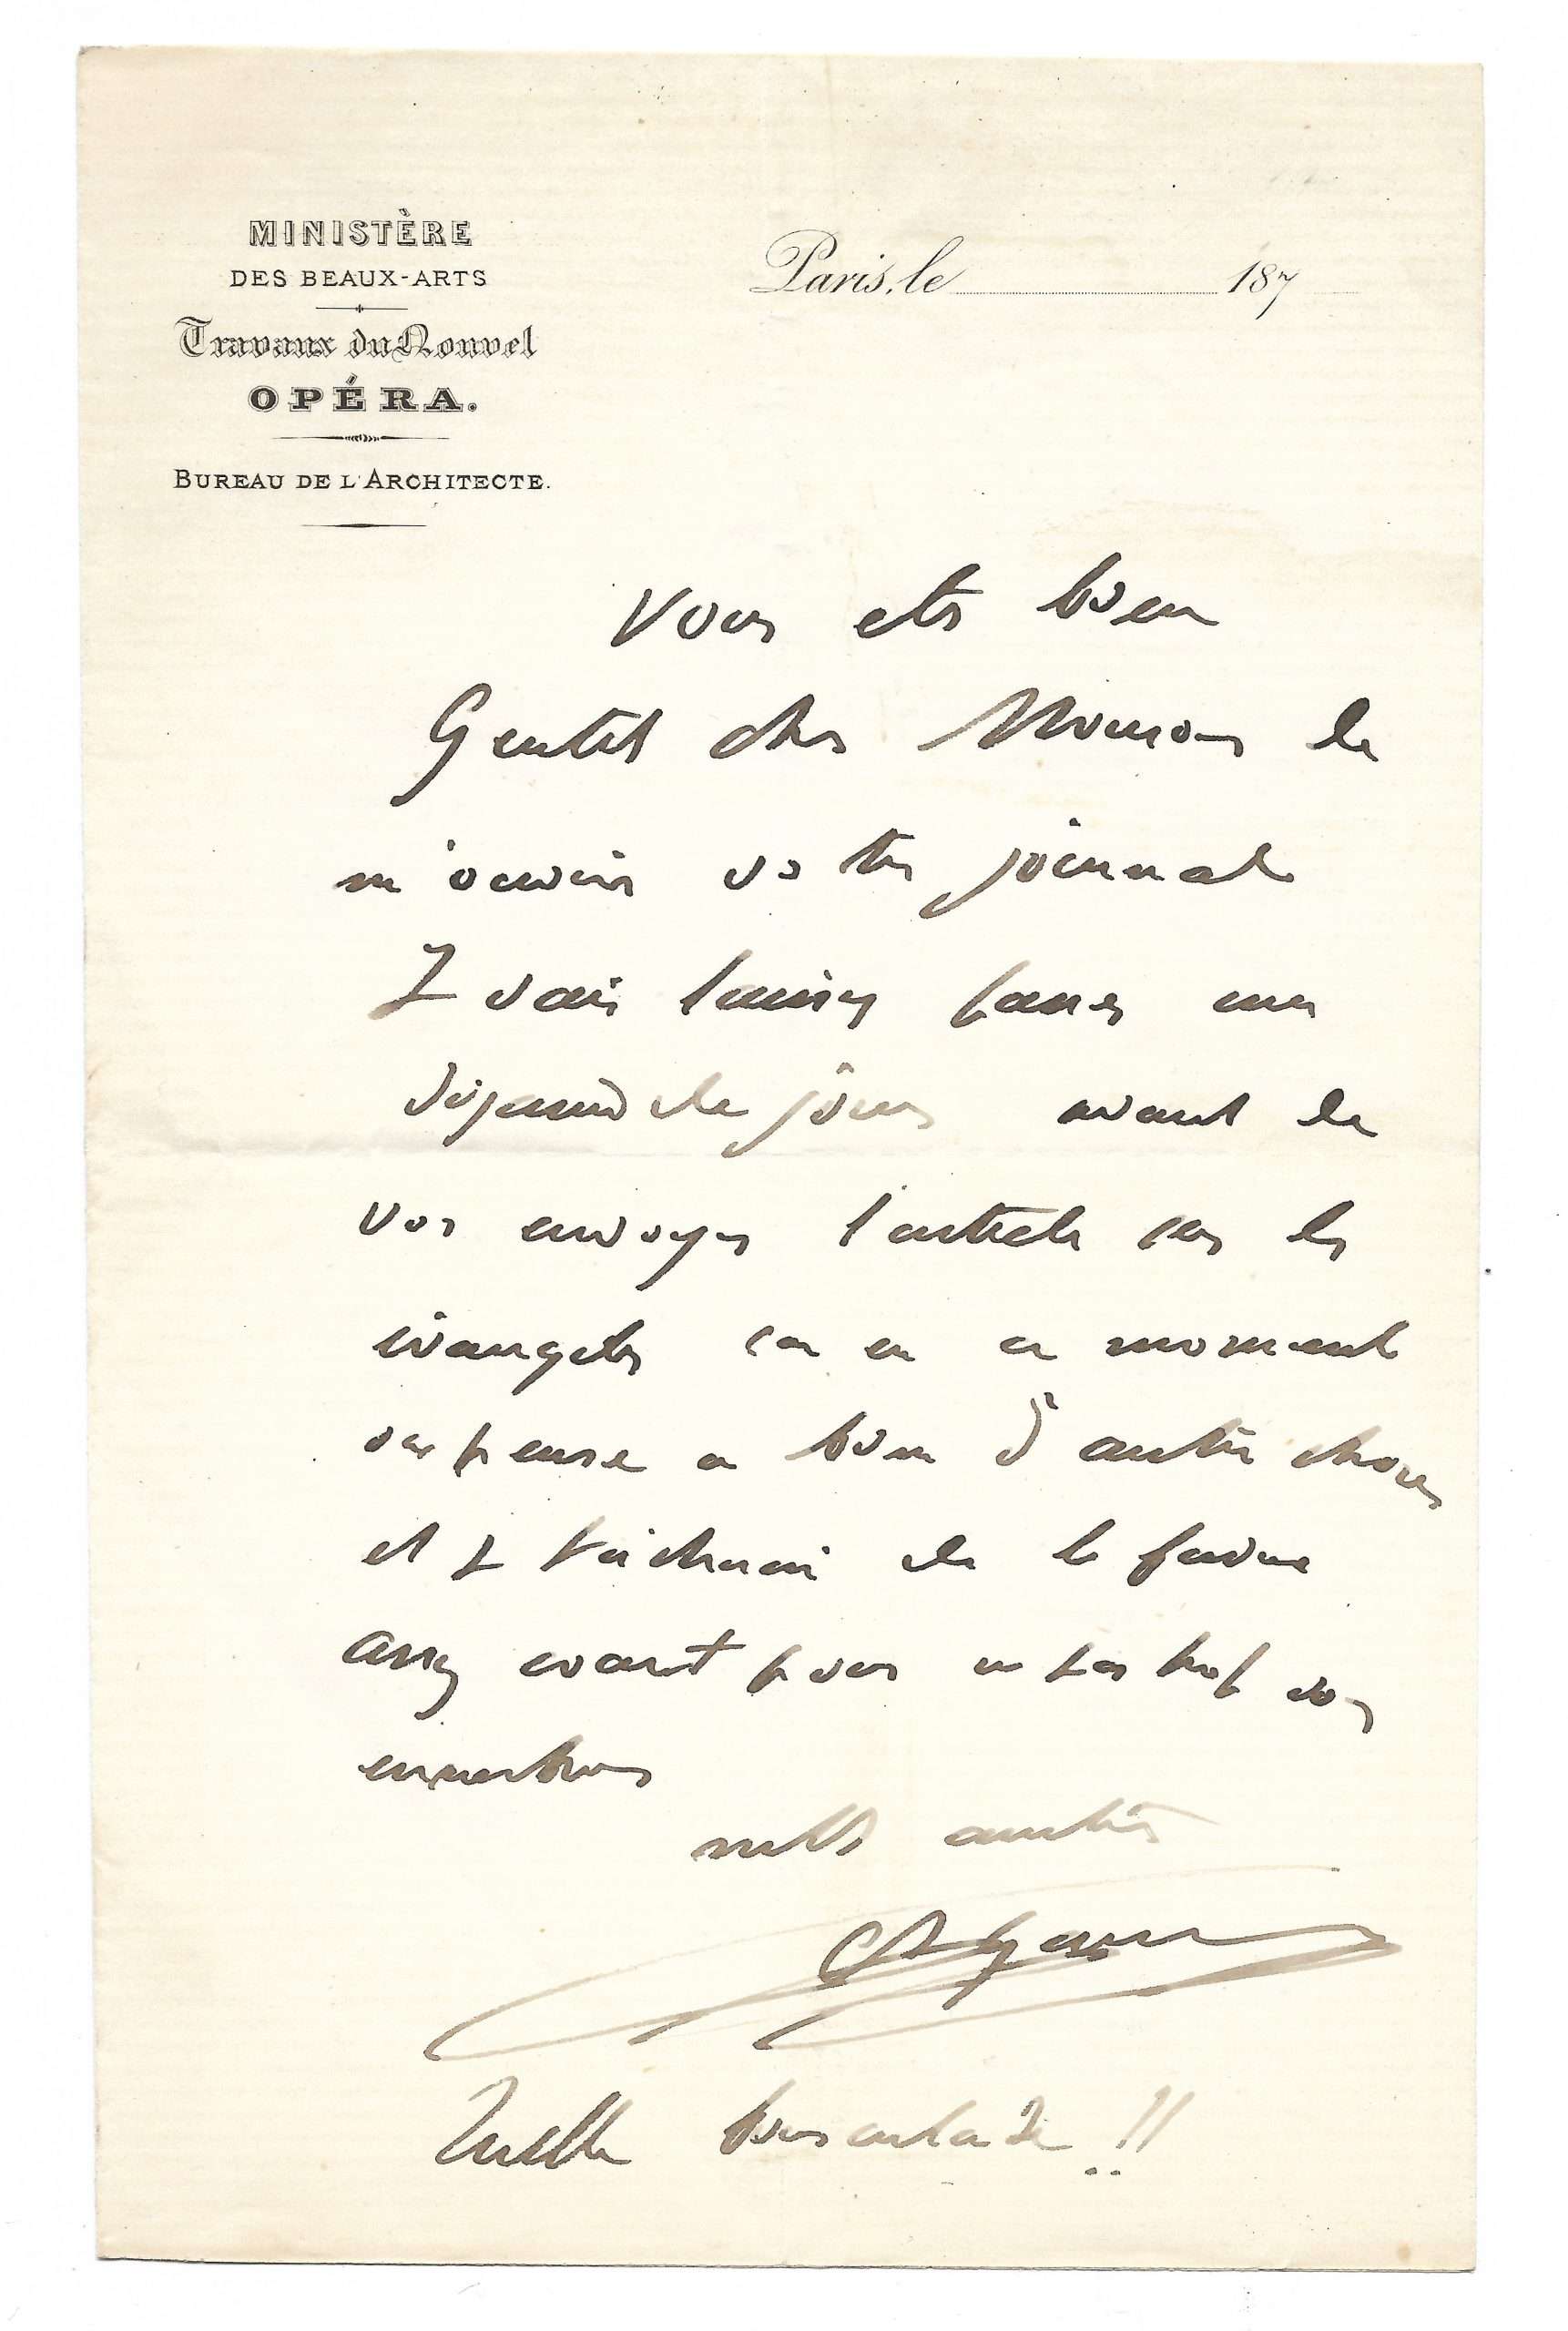 MINISTÈRE
DES BEAUX-ARTS
Travaux du Nouvel
OPÉRA.
BUREAU DE L'ARCHITECTE.
Paris, le 187
Vous etes bien
Gentil cher Monsieur de
m'envoier votre journal
Je vais laisser passer une
de jours avant de
vos envoyer l'article sur les
évangeles car en ce moment
on pense a bien d'autres choses
et je tâcherai de le faire
assez court pour ne pas trop vos
mille amitiés
Ch Garnier
Quelle bousculade !!